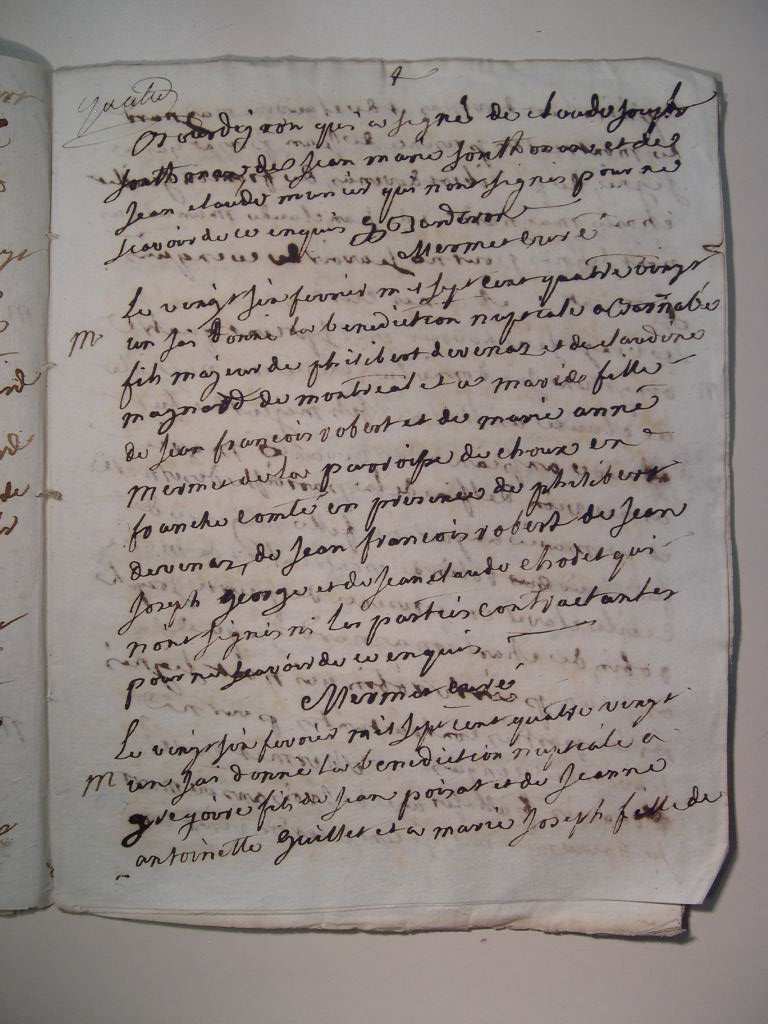 4
quatre
qui a signé de claude Joseph
Sonthonax, de Jean marie Sonthonax et de
Jean claude munier qui n'ont signés pour ne
scavoir de ce enquis
Mermet curé
Le vingt six fevrier mil sept cent quatre vingt
M
un Jai donné la benediction nuptiale a
fils majeur de philibert devenaz et de claudine
maynard de montreal et a marie fille
de Jean francois robert et de marie anne
Mermet de la paroisse de choux en
franche comté en presence de philibert
devenaz, de Jean francois robert de Jean
Joseph george et de Jean claude chodet qui
n'ont signés ni les parties contractantes
pour ne scavoir de ce enquis
Mermet curé
Le vingt six fevrier mil sept cent quatre vingt
M
un Jai donné la benediction nuptiale a
gregoire fils de Jean poizat et de Jeanne
antoinette guillet et a marie Joseph fille de